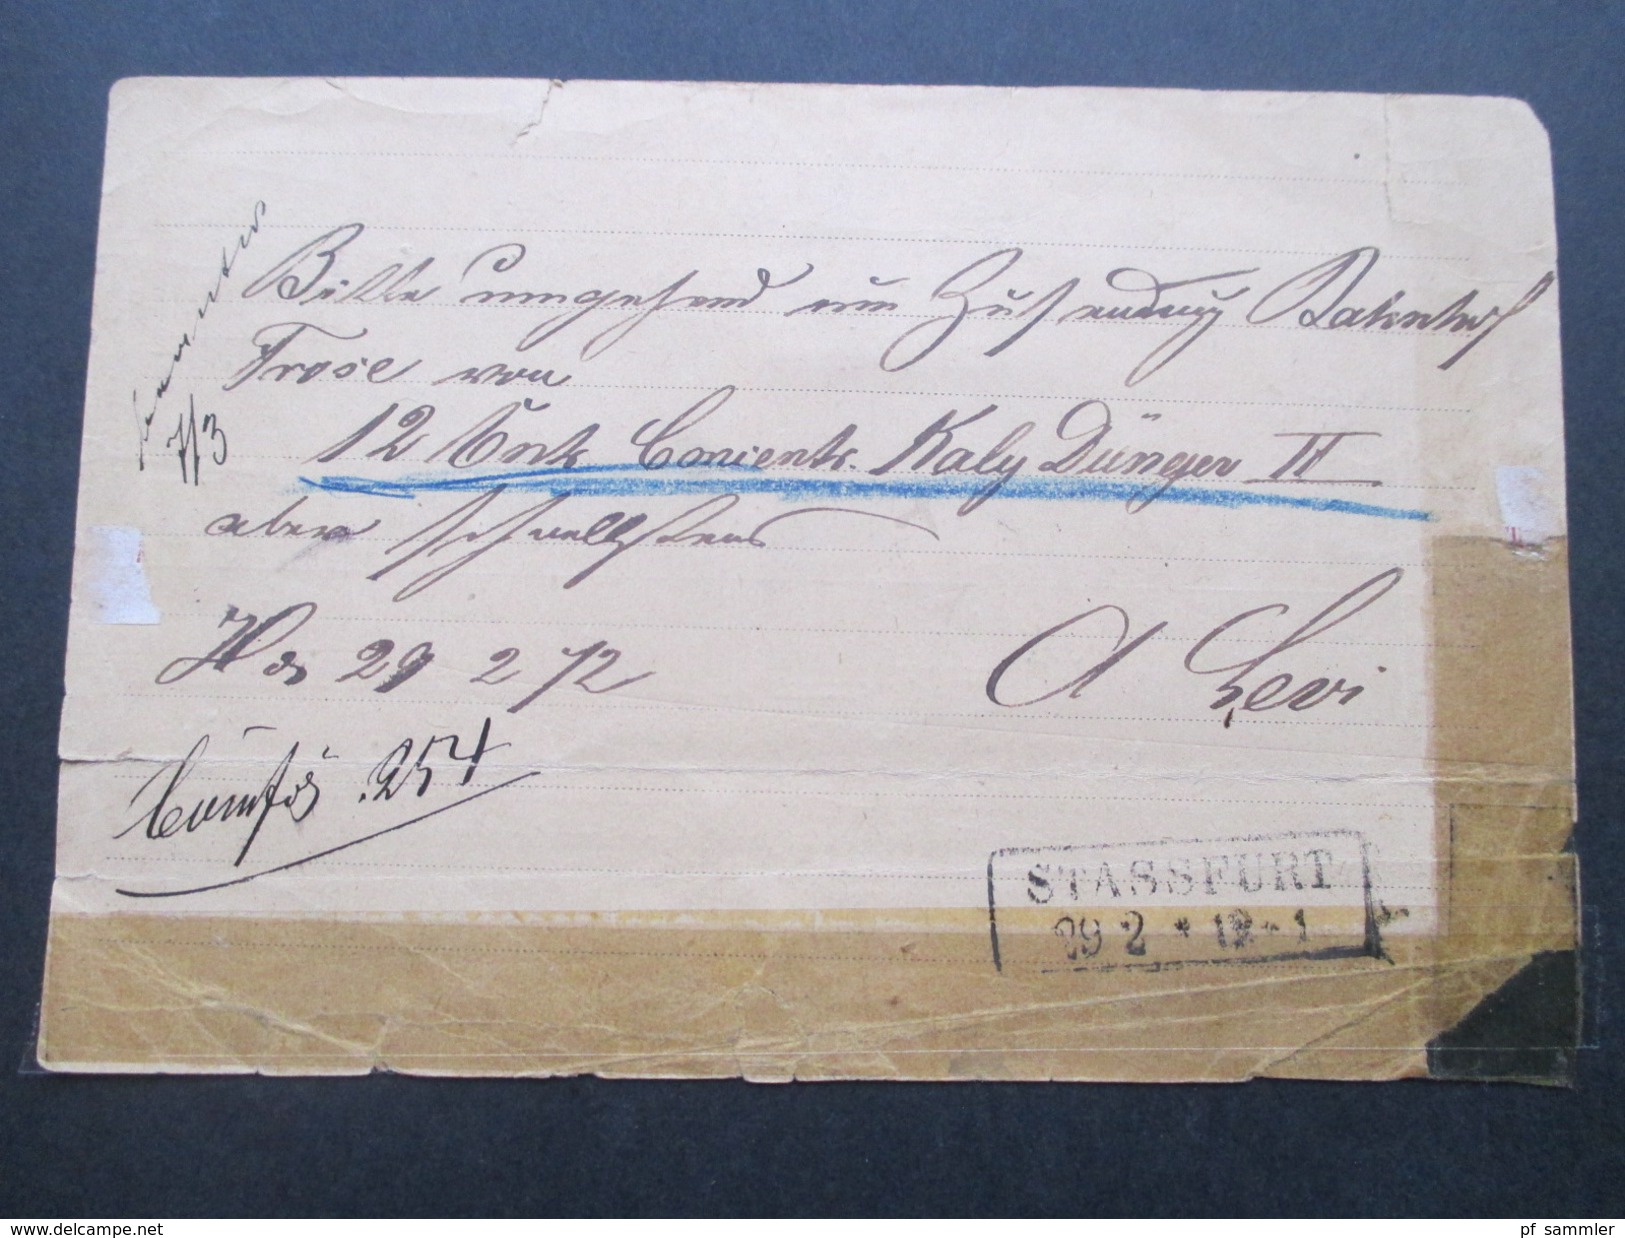 Bitte umgehend um Zusendung Bahnhof
Trose von
12 Cntr Concentr. Kaly Dünger II
aber schnellstens
29 2 72
A Levi
7/3
254
STASSFURT
29 2 * 12-1
delcampe.net
pf_sammler